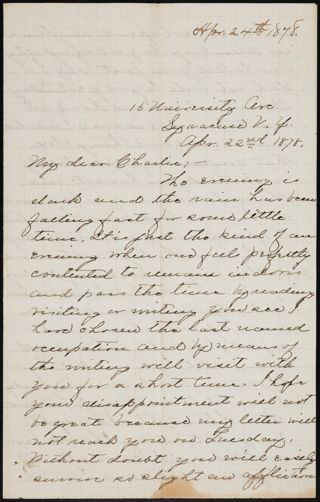 Apr. 24th 1878.
15 University Ave.
Syracuse N. Y.
Apr. 22nd 1878.
My dear Charlie;-
The evening is
dark and the rain has been
falling fast for some little
time, it is just the kind of an
evening when one feels perfectly
contented to remain indoors
and pass the time by reading
visiting or writing you see I
have chosen the last named
occupation and by means of
the writing will visit with
you for a short time. I hope
your disappointment will not
be great because my letter will
not reach you on Tuesday.
Without doubt you will easily
survive so slight an affliction